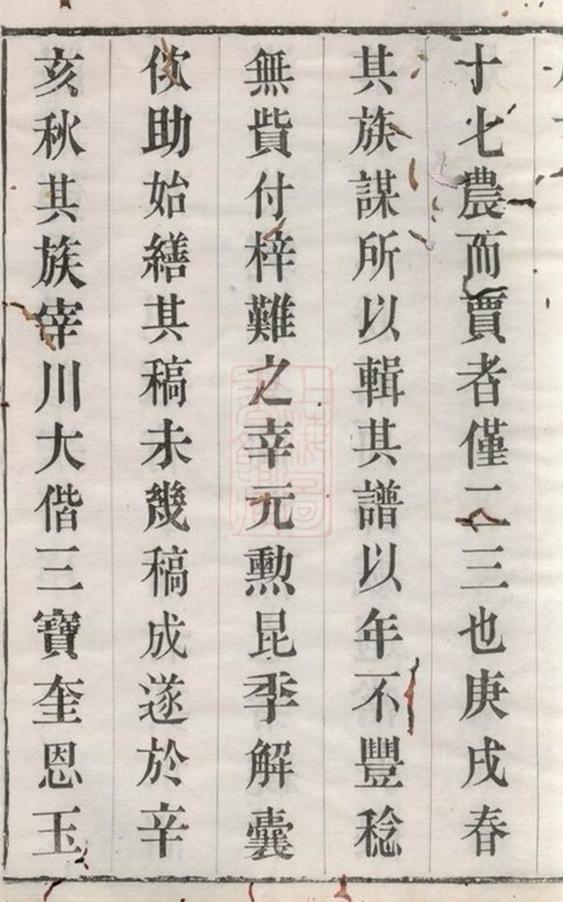 十七農而賈者僅二三也庚戌春
其族謀所以輯其譜以年不豐稔
無貲付梓難之幸元勲昆季解囊
佽助始繕其稿未幾稿成遂於辛
亥秋其族宰川大偕三寶奎恩玉